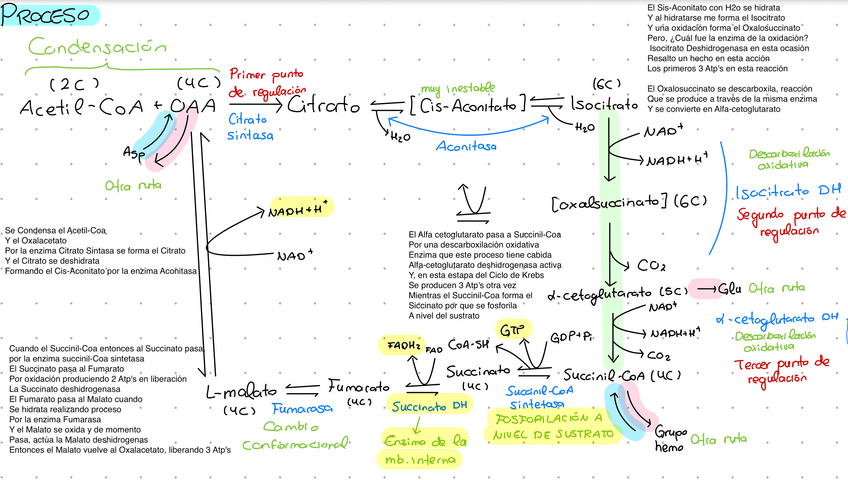 PROCESO
El Sis-Aconitato con H2o se hidrata
Y al hidratarse me forma el Isocitrato
Y una oxidación forma el Oxalosuccinato
Pero, ¿Cuál fue la enzima de la oxidación?
Isocitrato Deshidrogenasa en esta ocasión
Resalto un hecho en esta acción
Los primeros 3 Atp's en esta reacción
El Oxalosuccinato se descarboxila, reacción
Que se produce a través de la misma enzima
Y se convierte en Alfa-cetoglutarato
Condensación
(2C) (4C)
Acetil-CoA + OAA
Primer punto
de regulación
Citrato
sintasa
Citrato
muy inestable
[Cis-Aconitato]
(6C)
Isocitrato
H2O
H2O
Aconitasa
Asp
Otra ruta
NAD+
NADH+H+
Descarboxilación
oxidativa
Isocitrato DH
Segundo punto de
regulación
[oxalsuccinato] (6C)
CO2
α-cetoglutarato (5C)
Glu Otra ruta
NADH+H+
NAD+
Se Condensa el Acetil-Coa,
Y el Oxalacetato
Por la enzima Citrato Sintasa se forma el Citrato
Y el Citrato se deshidrata
Formando el Cis-Aconitato por la enzima Acohitasa
El Alfa cetoglutarato pasa a Succinil-Coa
Por una descarboxilación oxidativa
Enzima que este proceso tiene cabida
Alfa-cetoglutarato deshidrogenasa activa
Y, en esta estapa del Ciclo de Krebs
Se producen 3 Atp's otra vez
Mientras el Succinil-Coa forma el
Siccinato por que se fosforila
A nivel del sustrato
NAD+
NADH+H+
CO2
α-cetoglutarato DH
Descarboxilación
oxidativa
Tercer punto de
regulación
Cuando el Succinil-Coa entonces al Succinato pasa
por la enzima succinil-Coa sintetasa
El Succinato pasa al Fumarato
Por oxidación produciendo 2 Atp's en liberación
La Succinato deshidrogenasa
El Fumarato pasa al Malato cuando
Se hidrata realizando proceso
Por la enzima Fumarasa
Y el Malato se oxida y de momento
Pasa, actúa la Malato deshidrogenas
Entonces el Malato vuelve al Oxalacetato, liberando 3 Atp's
L-malato
(4C)
Fumarasa
Cambio
conformacional
Fumarato
(4C)
FADH2
FAD
Succinato DH
Enzima de la
mb. interna
CoA-SH
Succinato
(4C)
GTP
GDP+Pi
Succinil-CoA
sintetasa
FOSFORILACIÓN A
NIVEL DE SUSTRATO
Succinil-CoA (4C)
Grupo
hemo
Otra ruta